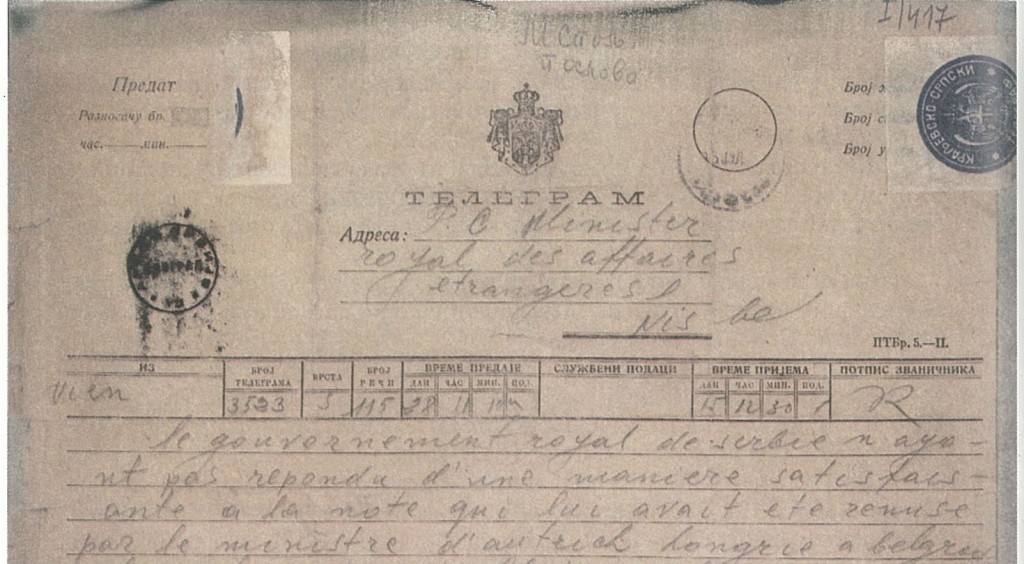 I/417
Предат
Разносачу бр.
час. мин.
Број
Број
Број
КРАЉЕВСКО СРПСКИ
ТЕЛЕГРАМ
Адреса: P. C Minister
royal des affaires
etrangeres
Nis be
ПТБр. 5.—II.
ИЗ
БРОЈ ТЕЛЕГРАМА
ВРСТА
БРОЈ РЕЧИ
ВРЕМЕ ПРЕДАЈЕ
ДАН ЧАС МИН. ПОД.
СЛУЖБЕНИ ПОДАЦИ
ВРЕМЕ ПРИЈЕМА
ДАН ЧАС МИН. ПОД.
ПОТПИС ЗВАНИЧНИКА
Vien 3523 115 28 11 12 30
le gouvernement royal de serbie n aya-
nt pas repondu d'une maniere satisfais-
ante a la note qui lui avait ete remise
par le ministre d'autrich hongrie a belgrad